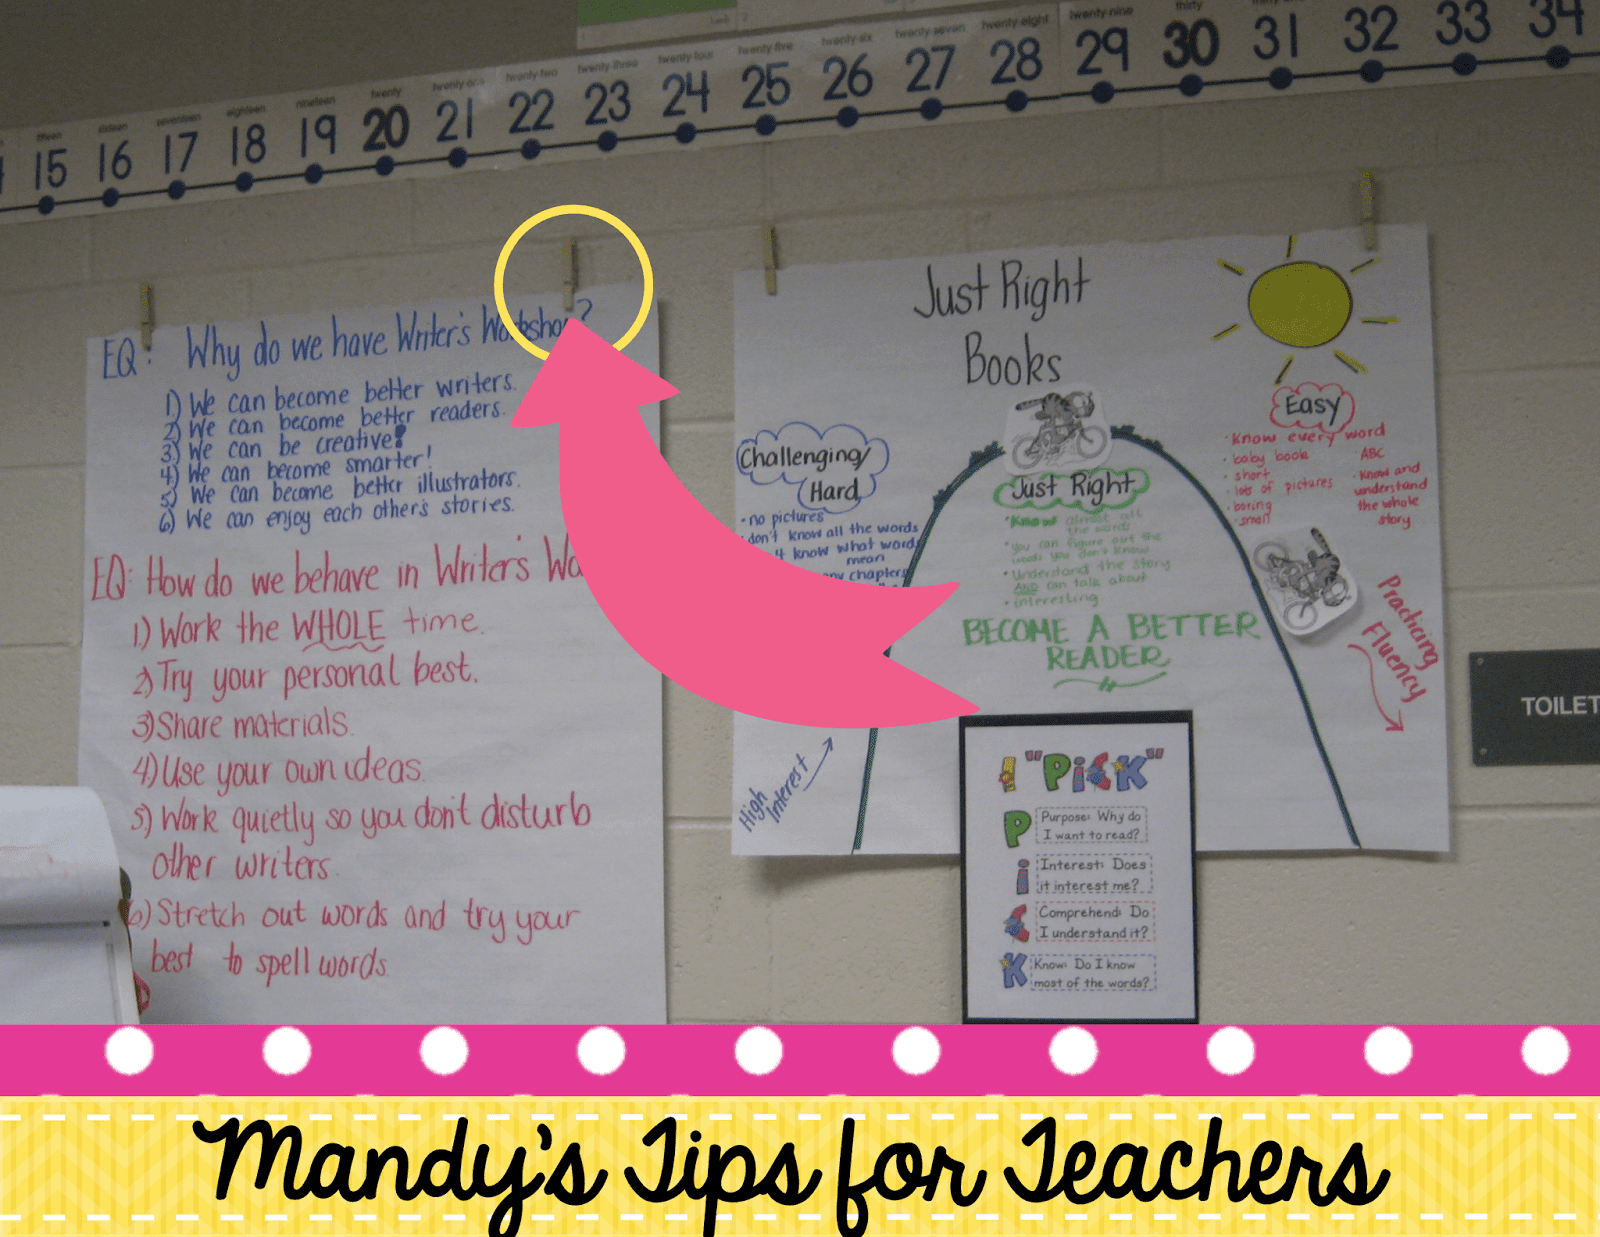 fifteen sixteen seventeen eighteen nineteen twenty twenty-one twenty-two twenty-three twenty-four twenty-five twenty-six twenty-seven twenty-eight twenty-nine thirty
15 16 17 18 19 20 21 22 23 24 25 26 27 28 29 30 31 32 33 34
EQ: Why do we have Writer's Workshop?
1) We can become better writers.
2) We can become better readers.
3) We can be creative!
4) We can become smarter!
5) We can become better illustrators.
6) We can enjoy each other's stories.
EQ: How do we behave in Writer's
1.) Work the WHOLE time.
2) Try your personal best.
3) Share materials.
4) Use your own ideas.
5) Work quietly so you don't disturb
other writers.
6) Stretch out words and try your
best to spell words.
Just Right
Books
Challenging/
Hard
• no pictures
• don't know all the words
know what words
mean
chapters
High
Interest
Just Right
• Know almost all
the words
• you can figure out the
words you don't know
• Understand the story
AND can talk about
• interesting
BECOME A BETTER
READER
Easy
• Know every word
• baby book
• short
• lots of pictures
• boring
• small
ABC
• Know and
understand
the whole
story
Practicing
Fluency
TOILET
I "PiCK"
P Purpose: Why do
I want to read?
i Interest: Does
it interest me?
C Comprehend: Do
I understand it?
K Know: Do I know
most of the words?
Mandy's Tips for Teachers